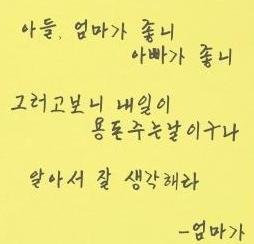 아들, 엄마가 좋니
아빠가 좋니
그러고보니 내일이
용돈주는날이구나
알아서 잘 생각해라
-엄마가